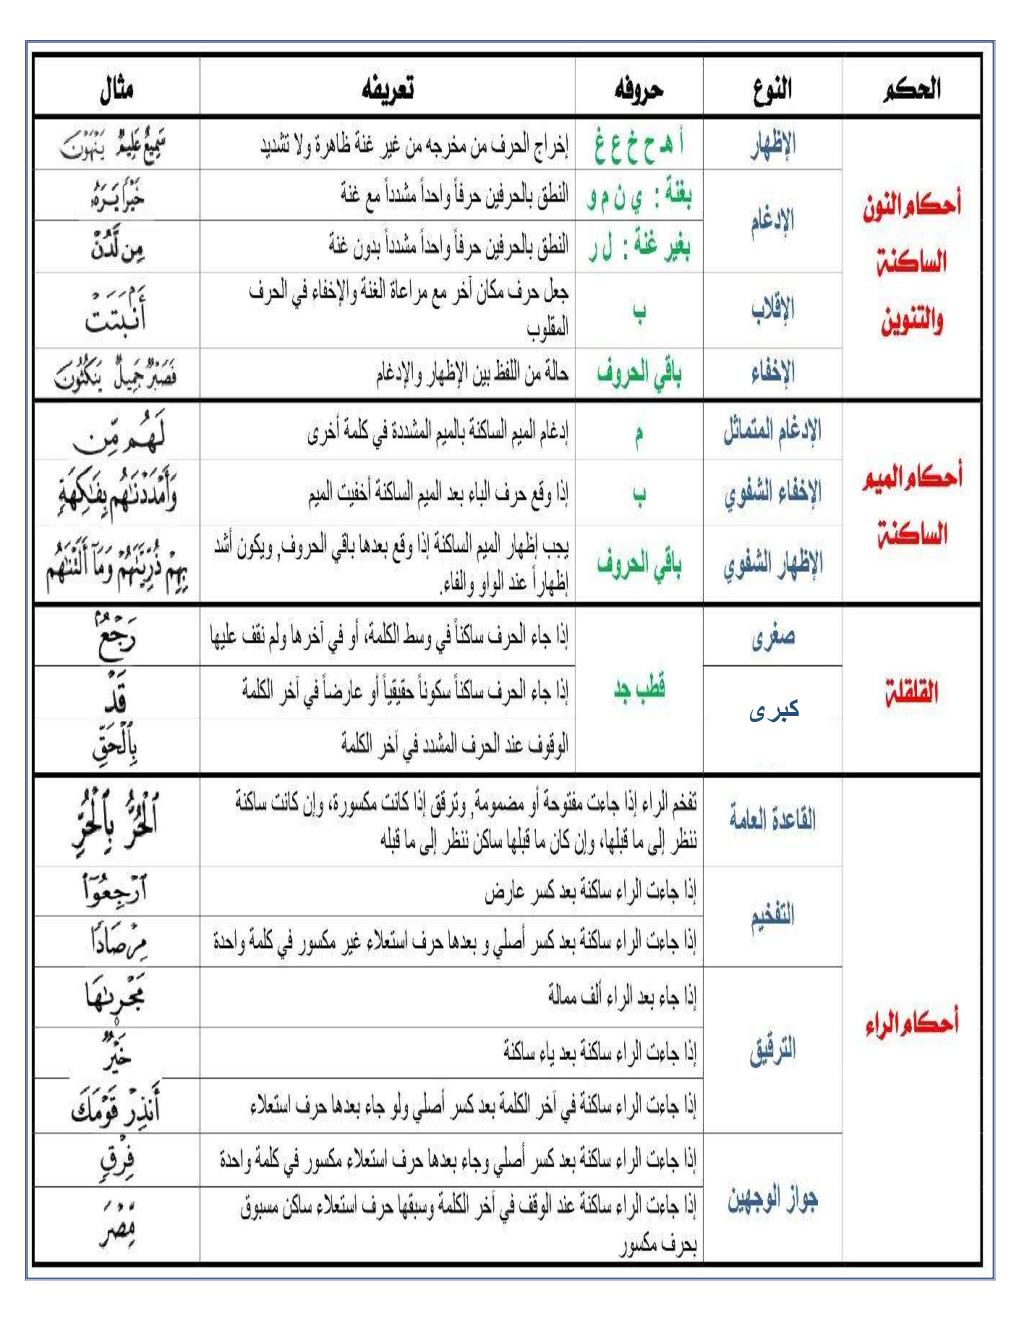 الحكم النوع حروفه تعريفه مثال
أحكام النون
الساكنة
والتنوين
الإظهار أ هـ ح خ ع غ إخراج الحرف من مخرجه من غير غنة ظاهرة ولا تشديد سَمِيعٌ عَلِيمٌ يَنْهَوْنَ
الإدغام بغنة : ي ن م و النطق بالحرفين حرفاً واحداً مشدداً مع غنة خَيْرًا يَرَهُ
بغير غنة : ل ر النطق بالحرفين حرفاً واحداً مشدداً بدون غنة مِن لَّدُنْ
الإقلاب ب جعل حرف مكان آخر مع مراعاة الغنة والإخفاء في الحرف
المقلوب أَنۢبَتَتْ
الإخفاء باقي الحروف حالة من اللفظ بين الإظهار والإدغام فَصَبْرٌ جَمِيلٌ يَنكُثُونَ
أحكام الميم
الساكنة
الإدغام المتماثل م إدغام الميم الساكنة بالميم المشددة في كلمة أخرى لَهُم مِّن
الإخفاء الشفوي ب إذا وقع حرف الباء بعد الميم الساكنة أخفيت الميم وَأَمْدَدْنَٰهُم بِفَٰكِهَةٍ
الإظهار الشفوي باقي الحروف يجب إظهار الميم الساكنة إذا وقع بعدها باقي الحروف, ويكون أشد
إظهاراً عند الواو والفاء. بِهِمْ ذُرِّيَّتَهُمْ وَمَآ أَلَتْنَٰهُم
القلقلة
صغرى قطب جد إذا جاء الحرف ساكناً في وسط الكلمة، أو في آخرها ولم نقف عليها رَجْعٌ
كبرى إذا جاء الحرف ساكناً سكوناً حقيقياً أو عارضاً في آخر الكلمة قَدْ
الوقوف عند الحرف المشدد في آخر الكلمة بِٱلْحَقِّ
أحكام الراء
القاعدة العامة تفخم الراء إذا جاءت مفتوحة أو مضمومة, وترقق إذا كانت مكسورة، وإن كانت ساكنة
ننظر إلى ما قبلها، وإن كان ما قبلها ساكن ننظر إلى ما قبله ٱلْحُرُّ بِٱلْحُرِّ
التفخيم إذا جاءت الراء ساكنة بعد كسر عارض ٱرْجِعُوٓا۟
إذا جاءت الراء ساكنة بعد كسر أصلي و بعدها حرف استعلاء غير مكسور في كلمة واحدة مِرْصَادًا
الترقيق إذا جاء بعد الراء ألف ممالة مَجْر۪ىٰهَا
إذا جاءت الراء ساكنة بعد ياء ساكنة خَيْرٌ
إذا جاءت الراء ساكنة في آخر الكلمة بعد كسر أصلي ولو جاء بعدها حرف استعلاء أَنذِرْ قَوْمَكَ
جواز الوجهين إذا جاءت الراء ساكنة بعد كسر أصلي وجاء بعدها حرف استعلاء مكسور في كلمة واحدة فِرْقٍ
إذا جاءت الراء ساكنة عند الوقف في آخر الكلمة وسبقها حرف استعلاء ساكن مسبوق
بحرف مكسور مِّصْرَ